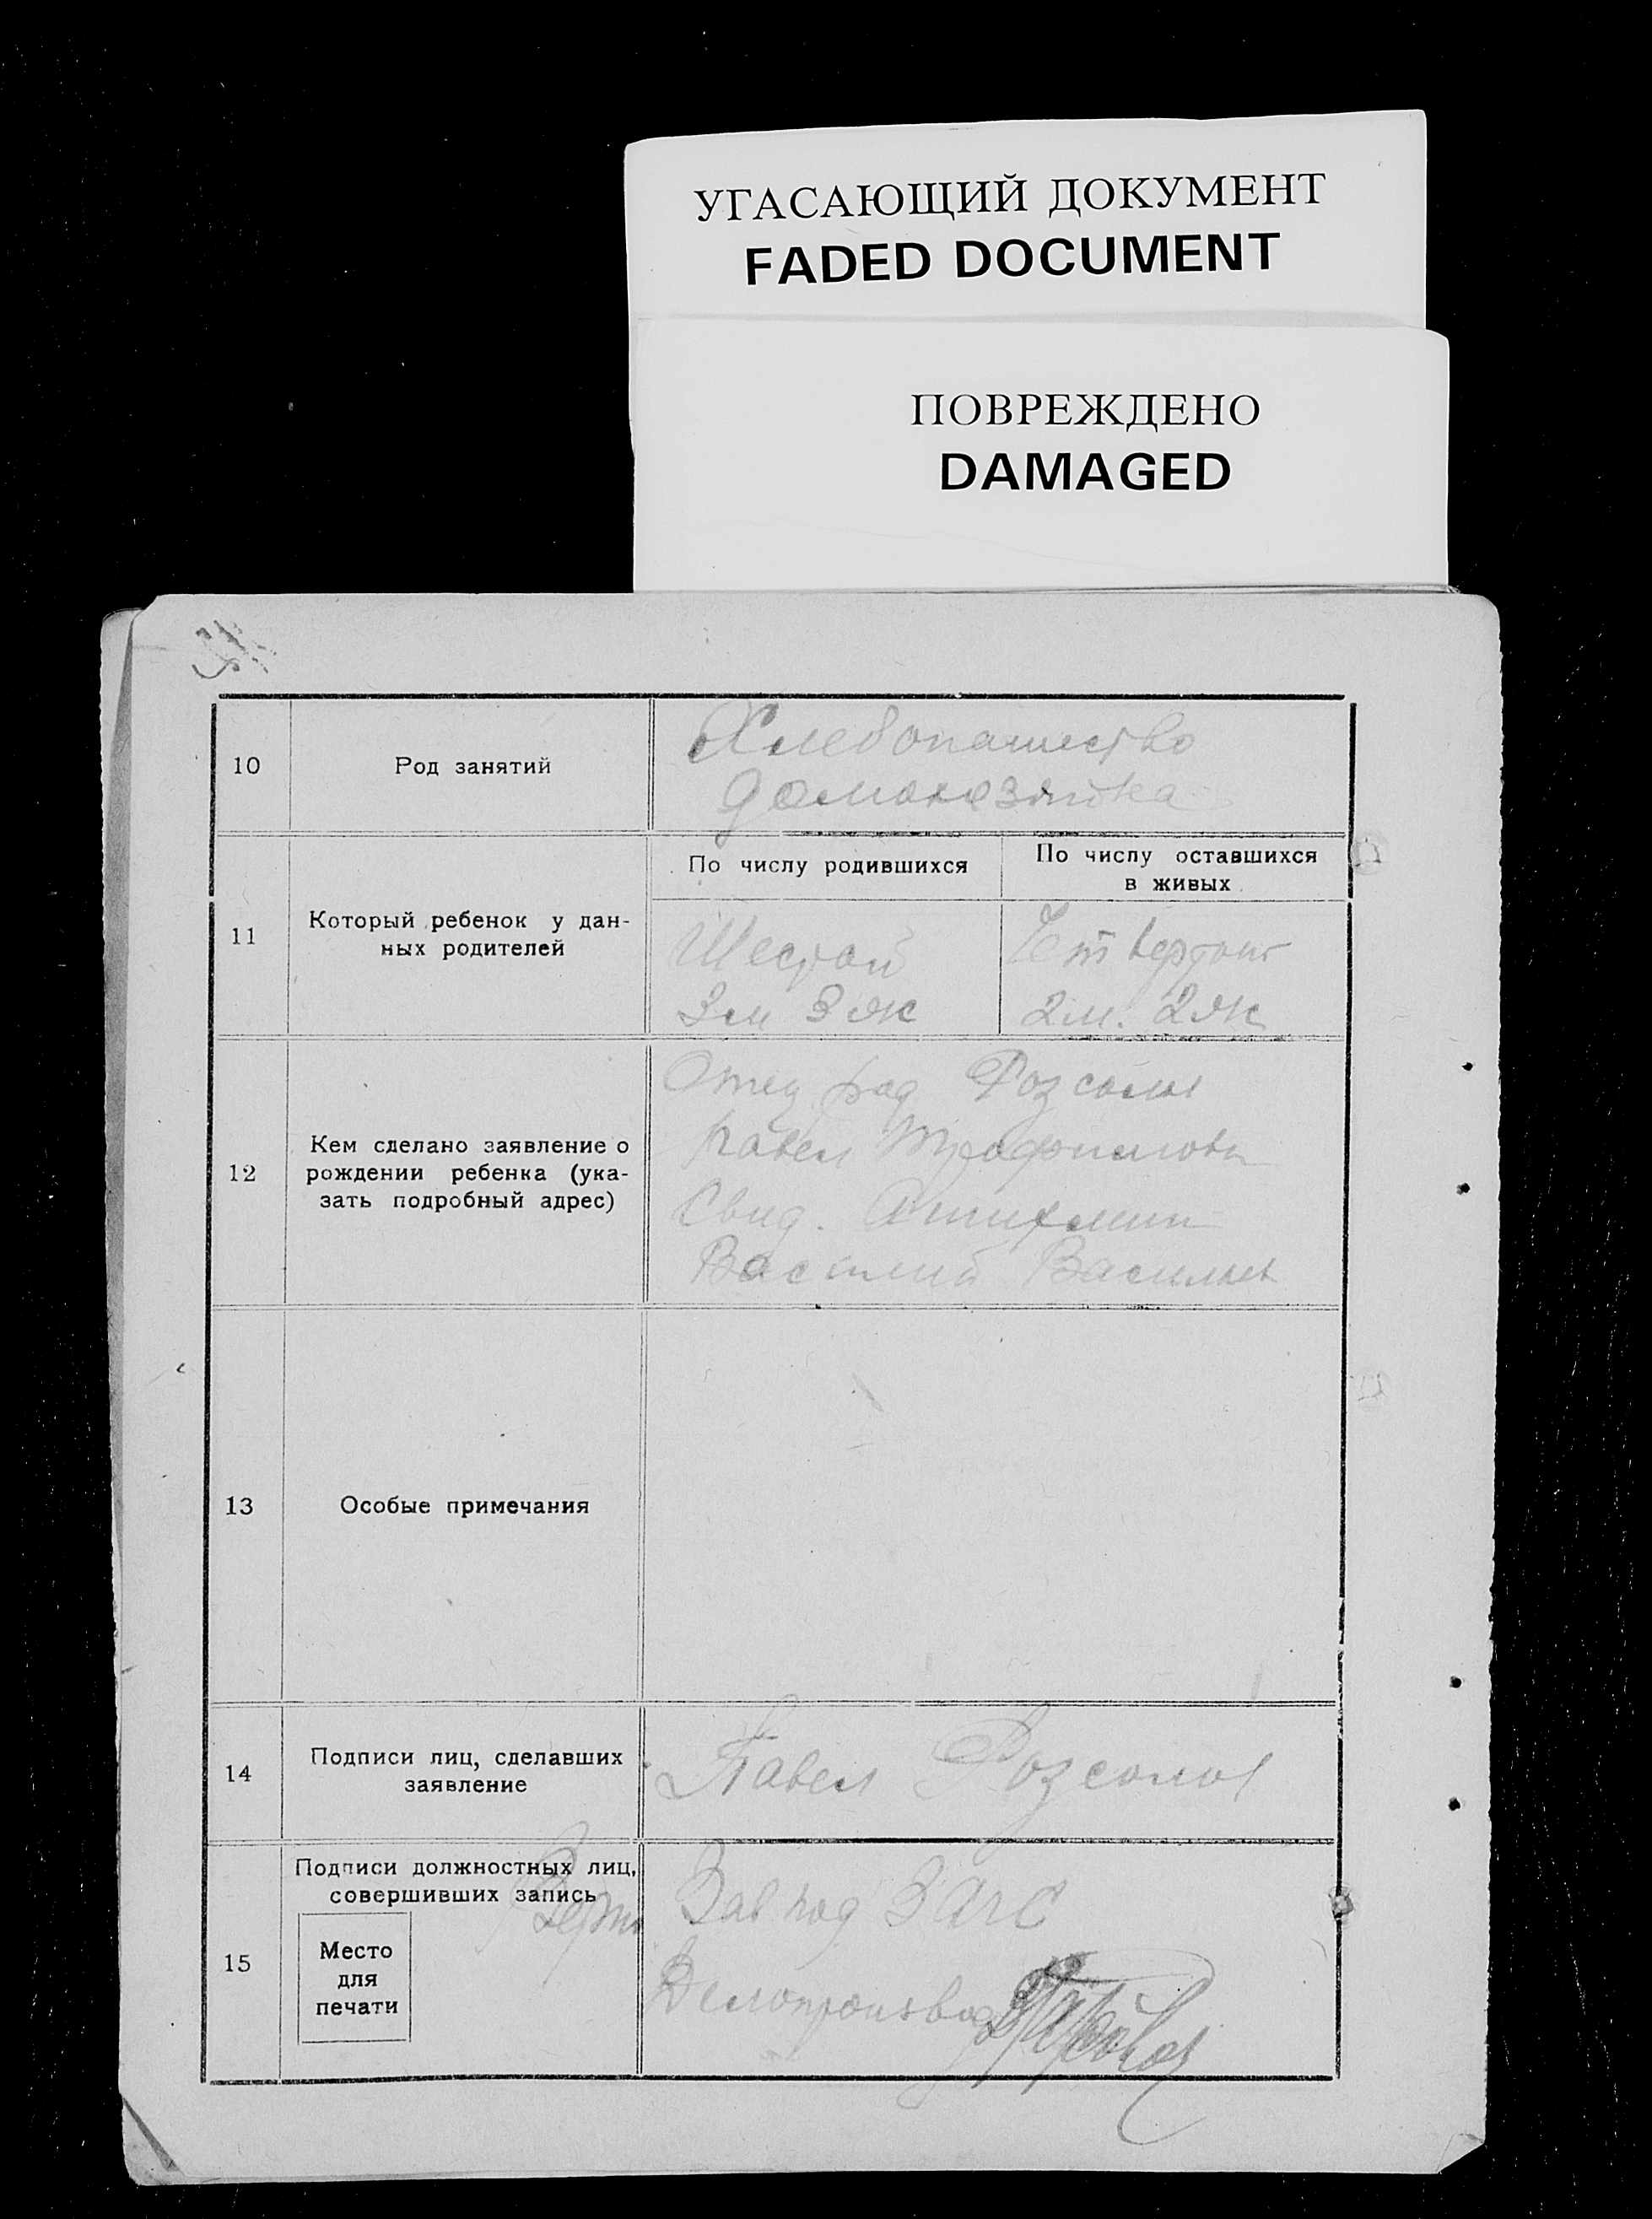 УГАСАЮЩИЙ ДОКУМЕНТ
FADED DOCUMENT
ПОВРЕЖДЕНО
DAMAGED
10
Род занятий
Хлебопашество
домохозяйка
11
Который ребенок у дан-
ных родителей
По числу родившихся
Шестой
3м 3ж
По числу оставшихся
в живых
Четвертой
2м. 2ж
12
Кем сделано заявление о
рождении ребенка (ука-
зать подробный адрес)
Отец Розсоха
Павел Трофимов
Свид.
Василий Васильев
13
Особые примечания
14
Подписи лиц, сделавших
заявление
Павел Розсоха
15
Подписи должностных лиц,
совершивших запись
Место
для
печати
Зав под ЗАГС
Делопроизвод